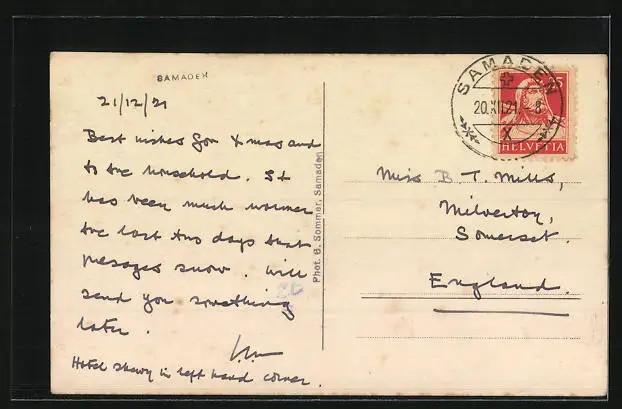 SAMADEN
21/12/21
Best wishes for Xmas and
to the household. It
has been much warmer
the last two days that
presages snow. Will
send you something
later.
Hotel showy in left hand corner.
Phot. B. Sommer, Samaden
SAMADEN
20.XII.21.-8
X
25
HELVETIA
Miss B. T. Mills,
Milverton,
Somerset.
England.